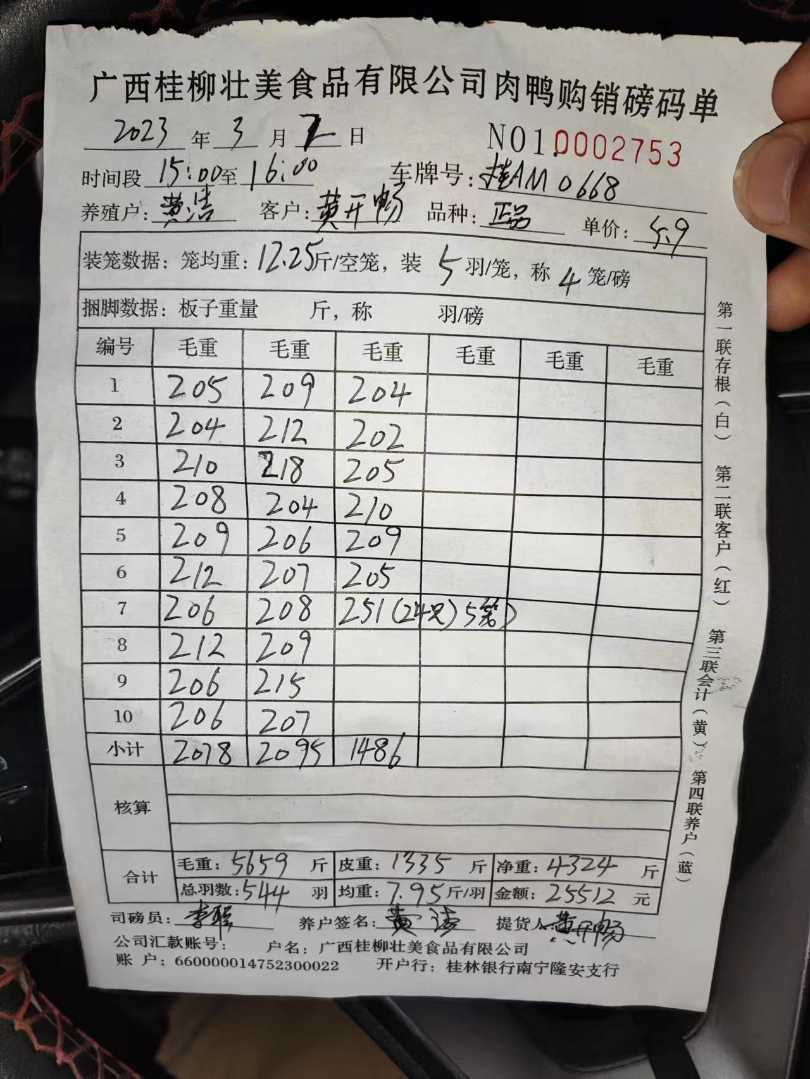 广西桂柳壮美食品有限公司肉鸭购销磅码单
2023 年 3 月 2 日 NO1.0002753
时间段 15:00 至 16:00 车牌号: 桂AM0668
养殖户: 黄洁 客户: 黄开畅 品种: 正品 单价: 5.9
装笼数据: 笼均重: 12.25 斤/空笼, 装 5 羽/笼, 称 4 笼/磅
捆脚数据: 板子重量 斤, 称 羽/磅
编号 毛重 毛重 毛重 毛重 毛重 毛重
1 205 209 204
2 204 212 202
3 210 218 205
4 208 204 210
5 209 206 209
6 212 207 205
7 206 208 251(24只)5笼)
8 212 209
9 206 215
10 206 207
小计 2078 2095 1486
核算
合计 毛重: 5659 斤 皮重: 1335 斤 净重: 4324 斤
总羽数: 544 羽 均重: 7.95 斤/羽 金额: 25512 元
司磅员: 养户签名: 黄洁 提货人: 黄开畅
公司汇款账号: 户名: 广西桂柳壮美食品有限公司
账 户: 660000014752300022 开户行: 桂林银行南宁隆安支行
第一联存根(白) 第二联客户(红) 第三联会计(黄) 第四联养户(蓝)